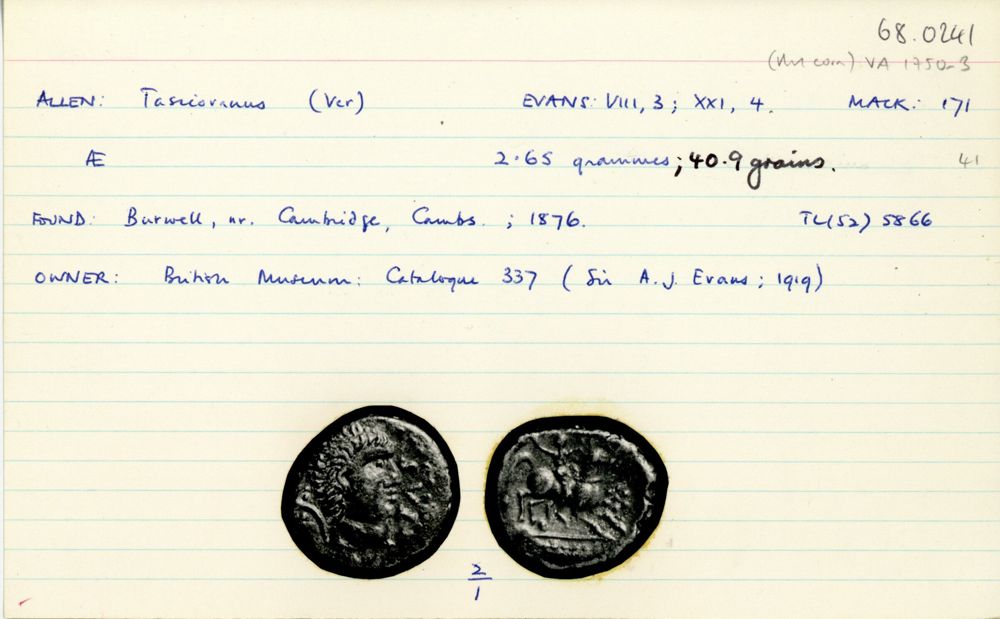 68.0241
VA 1750-3
ALLEN: Tasciovanus (Ver) EVANS: VIII, 3; XXI, 4. MACK: 171
Æ 2.65 grammes; 40.9 grains. 41
FOUND: Burwell, nr. Cambridge, Cambs.; 1876. TL(52) 5866
OWNER: British Museum: Catalogue 337 (Sir A.J. Evans; 1919)
2
1